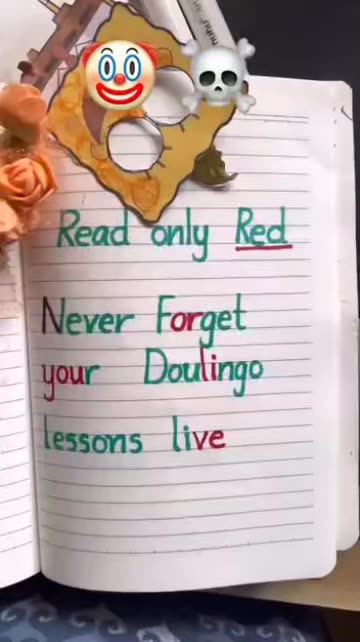 Read only Red
Never Forget
your Doulingo
lessons live